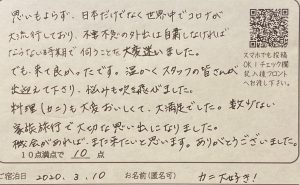 思いもよらず、日本だけでなく世界中でコロナが
大流行しており、不要不急の外出は自粛しなければ
ならない時期で伺うことに大変迷いました。
でも、来て良かったです。温かくスタッフの皆さんが
出迎えて下さり、悩みも吹き飛びました。
料理(カニ)も大変おいしくて、大満足でした。数少ない
家族旅行で大切な思い出になりました。
機会があれば、また来たいと思います。ありがとうございました。
スマホでも投稿
OK!チェック欄
記入後フロント
へお渡し下さい。
10点満点で 10 点
ご宿泊日 2020. 3. 10 お名前(匿名可) カニ大好き!